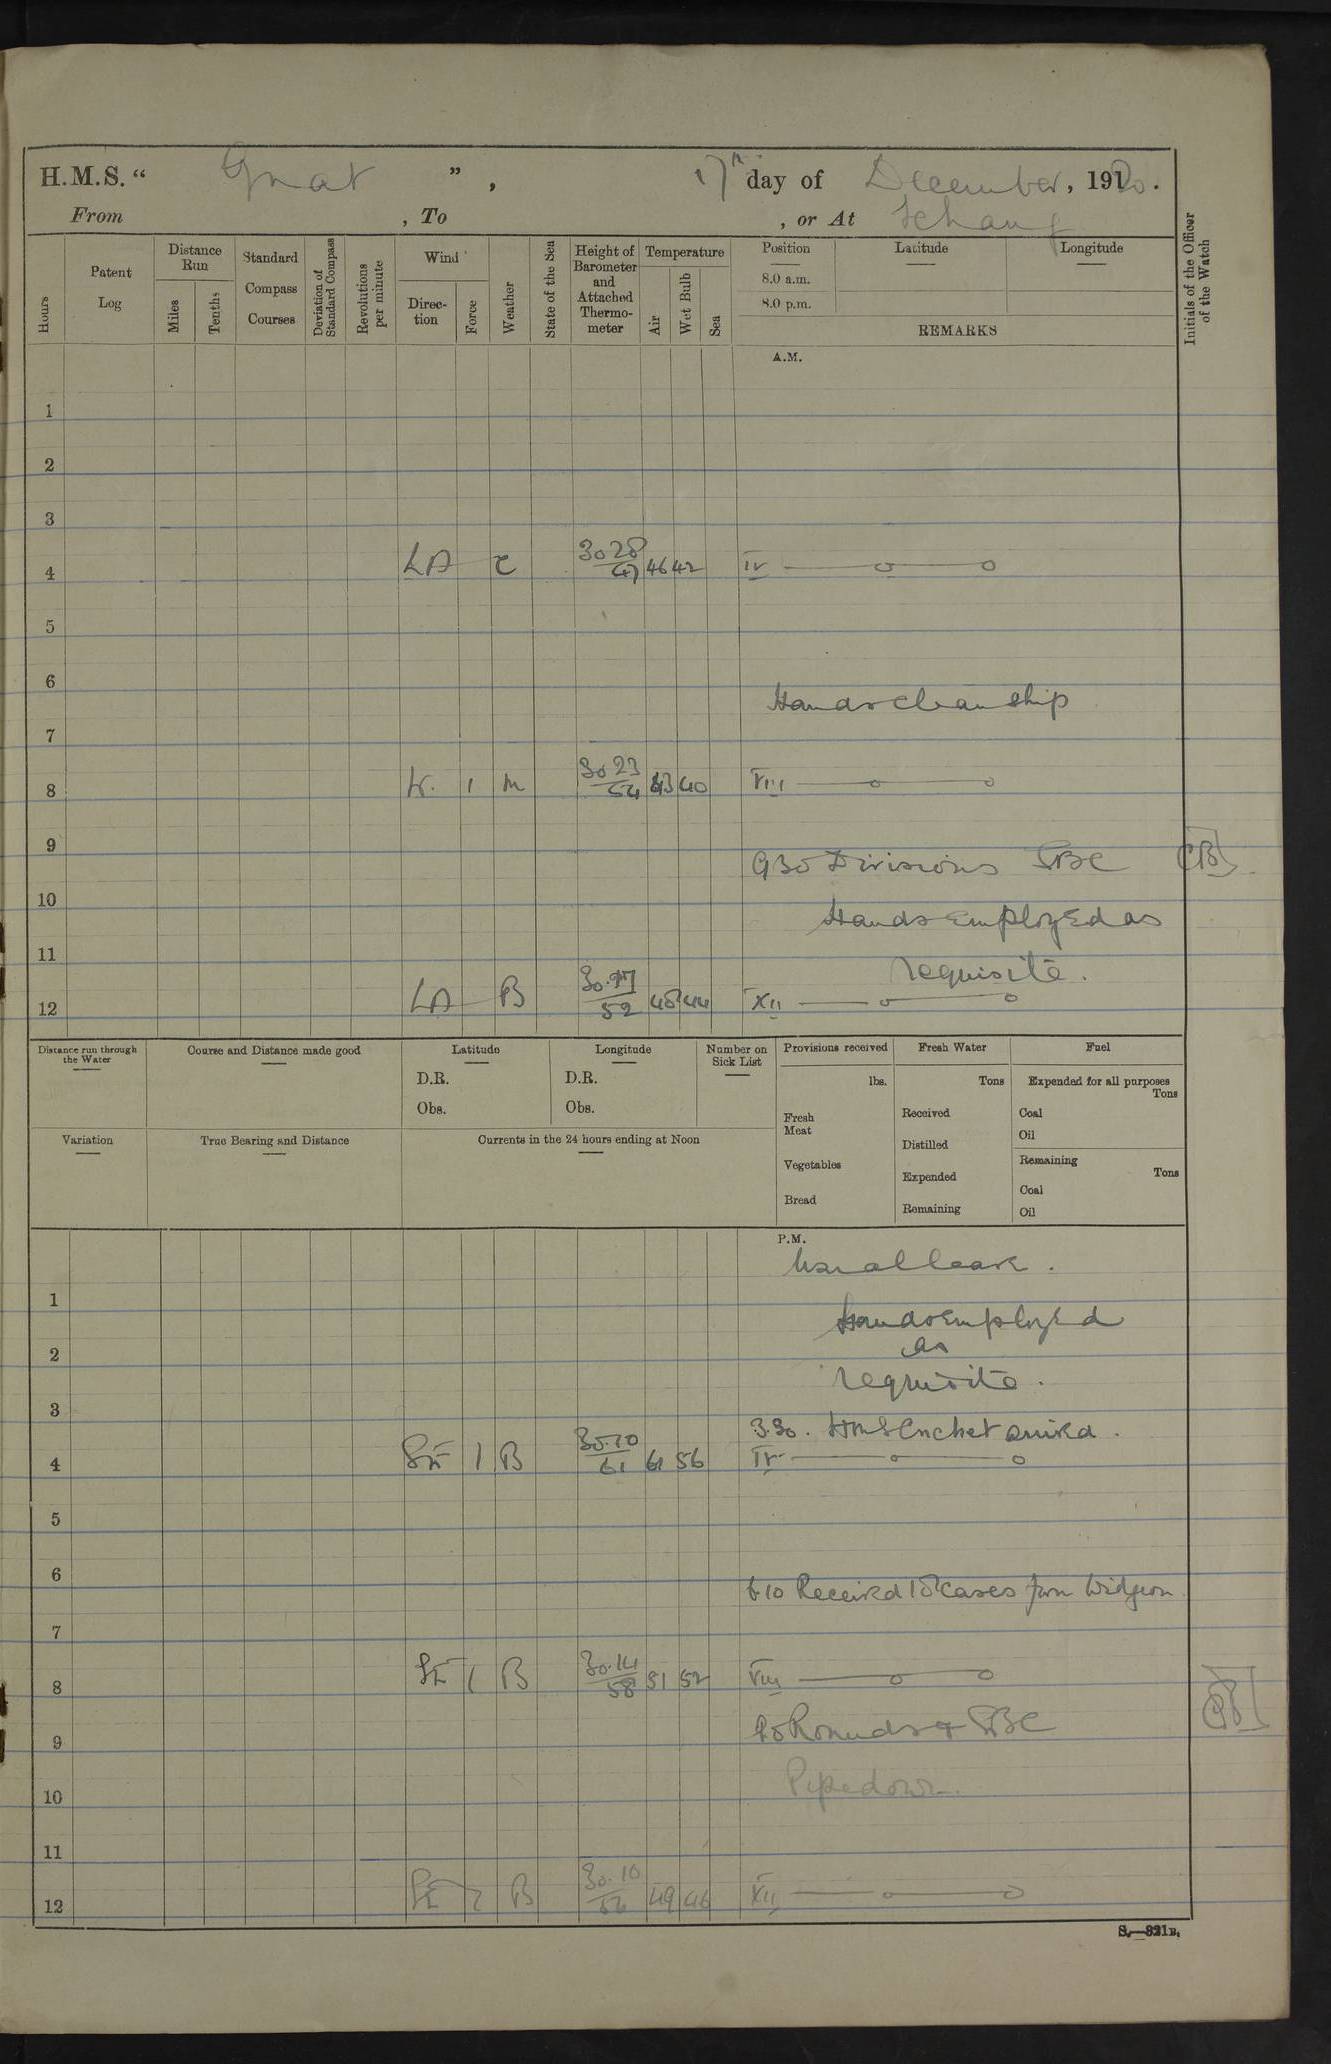 H.M.S. “ Gnat ” , 17th day of December, 1920.
From , To , or At Ichang
Hours
Patent Log
Distance Run
Miles
Tenths
Standard Compass Courses
Deviation of Standard Compass
Revolutions per minute
Wind
Direc-tion
Force
Weather
State of the Sea
Height of Barometer and Attached Thermo-meter
Temperature
Air
Wet Bulb
Sea
Position
8.0 a.m.
8.0 p.m.
Latitude
Longitude
REMARKS
Initials of the Officer of the Watch
A.M.
1
2
3
4 LA C 30 28 / 47 46 42 IV
5
6
Hands clean ship
7
8 W. 1 M 30 23 / 54 43 40 VIII
9
930 Divisions CB
10
Hands employed as
11
requisite.
12 LA B 30.17 / 52 48 44 XII
Distance run through the Water
Course and Distance made good
Latitude
D.R.
Obs.
Longitude
D.R.
Obs.
Number on Sick List
Provisions received
lbs.
Fresh Meat
Vegetables
Bread
Fresh Water
Tons
Received
Distilled
Expended
Remaining
Fuel
Expended for all purposes
Tons
Coal
Oil
Remaining
Tons
Coal
Oil
Variation
True Bearing and Distance
Currents in the 24 hours ending at Noon
P.M.
Usual leave.
1
Hands employed
as
2
requisite.
3
3.30. HMS Cricket arrived.
4 SE 1 B 30.10 / 61 61 56 IV
5
6
6 10 Received 18 cases from Widgeon
7
8 SE 1 B 30.14 / 58 51 52 VIII
Rounds &
9
Pipe down.
10
11
12 SE B 30.10 / 49 46 XII
S.—321B.